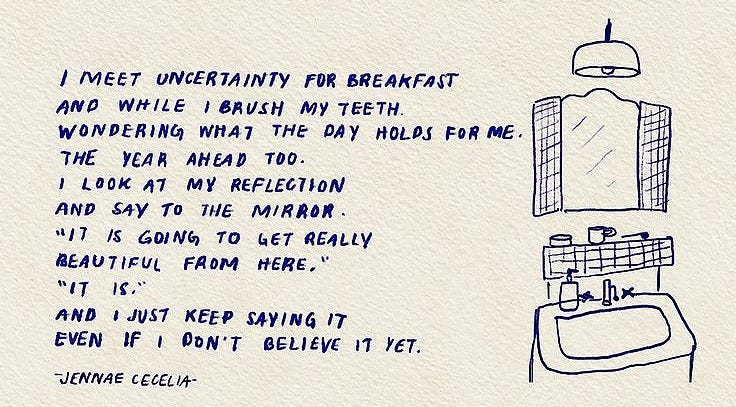 I MEET UNCERTAINTY FOR BREAKFAST
AND WHILE I BRUSH MY TEETH.
WONDERING WHAT THE DAY HOLDS FOR ME.
THE YEAR AHEAD TOO.
I LOOK AT MY REFLECTION
AND SAY TO THE MIRROR.
"IT IS GOING TO GET REALLY
BEAUTIFUL FROM HERE."
"IT IS."
AND I JUST KEEP SAYING IT
EVEN IF I DON'T BELIEVE IT YET.
-JENNAE CECELIA-